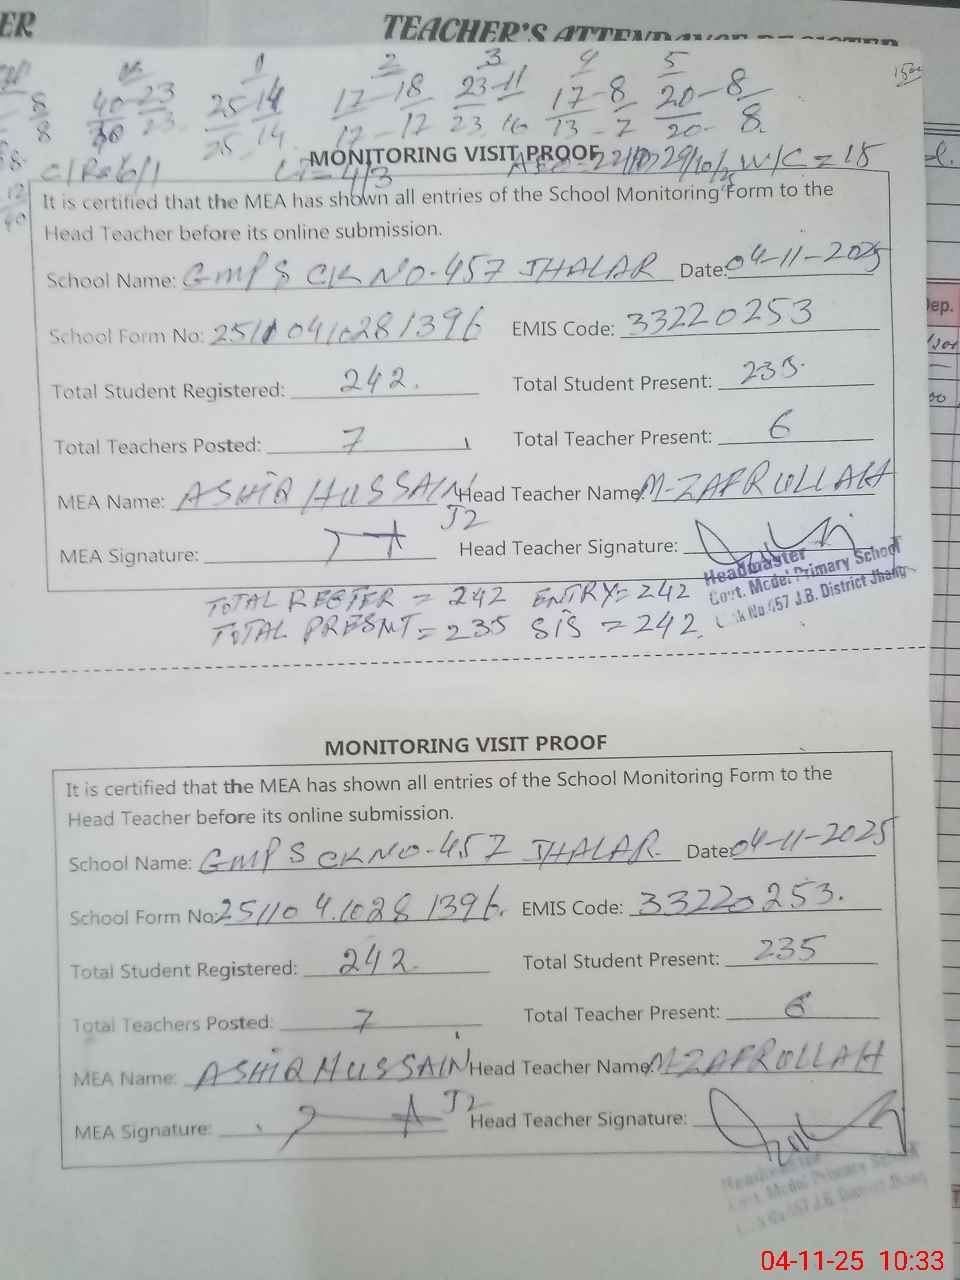 ER
TEACHER'S ATTENDANCE REGISTER
1 2 3 4 5
8 40 23 25-14 17-18 23-11 17-8 20-8
8 30 23 25 14 17-17 23 16 13-7 20- 8.
MONITORING VISIT PROOF
C/R=6/1 L = 4/3 29/10/25 W/C = 18
It is certified that the MEA has shown all entries of the School Monitoring Form to the
Head Teacher before its online submission.
School Name: GMPS CK NO-457 JHALAR Date: 04-11-2025
School Form No: 25110410281396 EMIS Code: 33220253
Total Student Registered: 242. Total Student Present: 235.
Total Teachers Posted: 7 Total Teacher Present: 6
MEA Name: ASHIQ HUSSAIN Head Teacher Name: M-ZAFRULLAH
J2
MEA Signature: Head Teacher Signature:
Headmaster
Govt. Model Primary School
Chak No.457 J.B. District Jhang
TOTAL REGTER = 242 ENTRY= 242
TOTAL PRESNT = 235 SIS = 242.
MONITORING VISIT PROOF
It is certified that the MEA has shown all entries of the School Monitoring Form to the
Head Teacher before its online submission.
School Name: GMPS CK NO-457 JHALAR. Date: 04-11-2025
School Form No: 251104.10281396. EMIS Code: 33220253.
Total Student Registered: 242. Total Student Present: 235
Total Teachers Posted: 7 Total Teacher Present: 6
MEA Name: ASHIQ HUSSAIN Head Teacher Name: M-ZAFRULLAH
J2
MEA Signature: Head Teacher Signature:
Headmaster
Govt. Model Primary School
Chak No.457 J.B. District Jhang
04-11-25 10:33